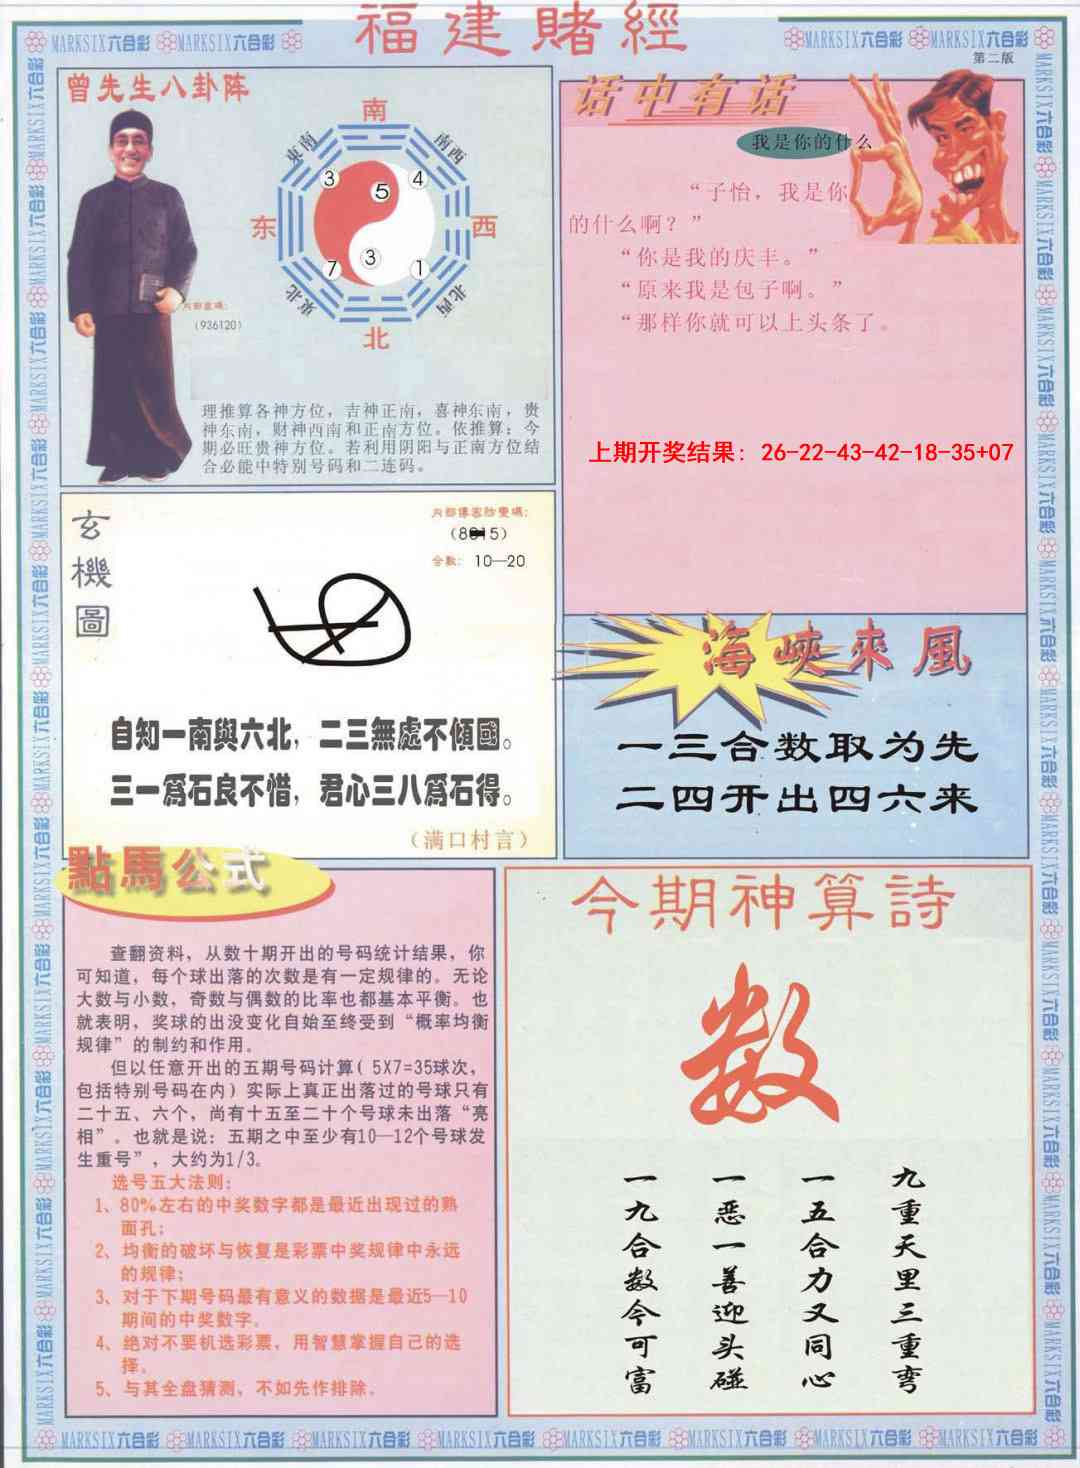 福建賭經
MARKSIX六合彩 MARKSIX六合彩
MARKSIX六合彩 MARKSIX六合彩
第二版
曾先生八卦阵
南
東南
南西
3
5
4
东
西
7
3
1
東北
北西
北
内部直碼：
（936120）
理推算各神方位，吉神正南，喜神东南，贵
神东南，财神西南和正南方位。依推算：今
期必旺贵神方位。若利用阴阳与正南方位结
合必能中特别号码和二连码。
话中有话
我是你的什么
“子怡，我是你
的什么啊？”
“你是我的庆丰。”
“原来我是包子啊。”
“那样你就可以上头条了。
上期开奖结果：26-22-43-42-18-35+07
玄
機
圖
内部傳密防變碼：
合数：10—20
自知一南與六北，二三無處不傾國。
三一爲石良不惜，君心三八爲石得。
（满口村言）
海峽來風
一三合数取为先
二四开出四六来
點馬公式
查翻资料，从数十期开出的号码统计结果，你
可知道，每个球出落的次数是有一定规律的。无论
大数与小数，奇数与偶数的比率也都基本平衡。也
就表明，奖球的出没变化自始至终受到“概率均衡
规律”的制约和作用。
但以任意开出的五期号码计算（5X7=35球次，
包括特别号码在内）实际上真正出落过的号球只有
二十五、六个，尚有十五至二十个号球未出落“亮
相”。也就是说：五期之中至少有10—12个号球发
生重号”，大约为1/3。
选号五大法则：
1、80%左右的中奖数字都是最近出现过的熟
面孔；
2、均衡的破坏与恢复是彩票中奖规律中永远
的规律；
3、对于下期号码最有意义的数据是最近5—10
期间的中奖数字。
4、绝对不要机选彩票，用智慧掌握自己的选
择。
5、与其全盘猜测，不如先作排除。
今期神算詩
数
九重天里三重弯
一五合力又同心
一恶一善迎头碰
一九合数今可富
MARKSIX六合彩 MARKSIX六合彩 MARKSIX六合彩 MARKSIX六合彩 MARKSIX六合彩 MARKSIX六合彩 MARKSIX六合彩 MARKSIX六合彩